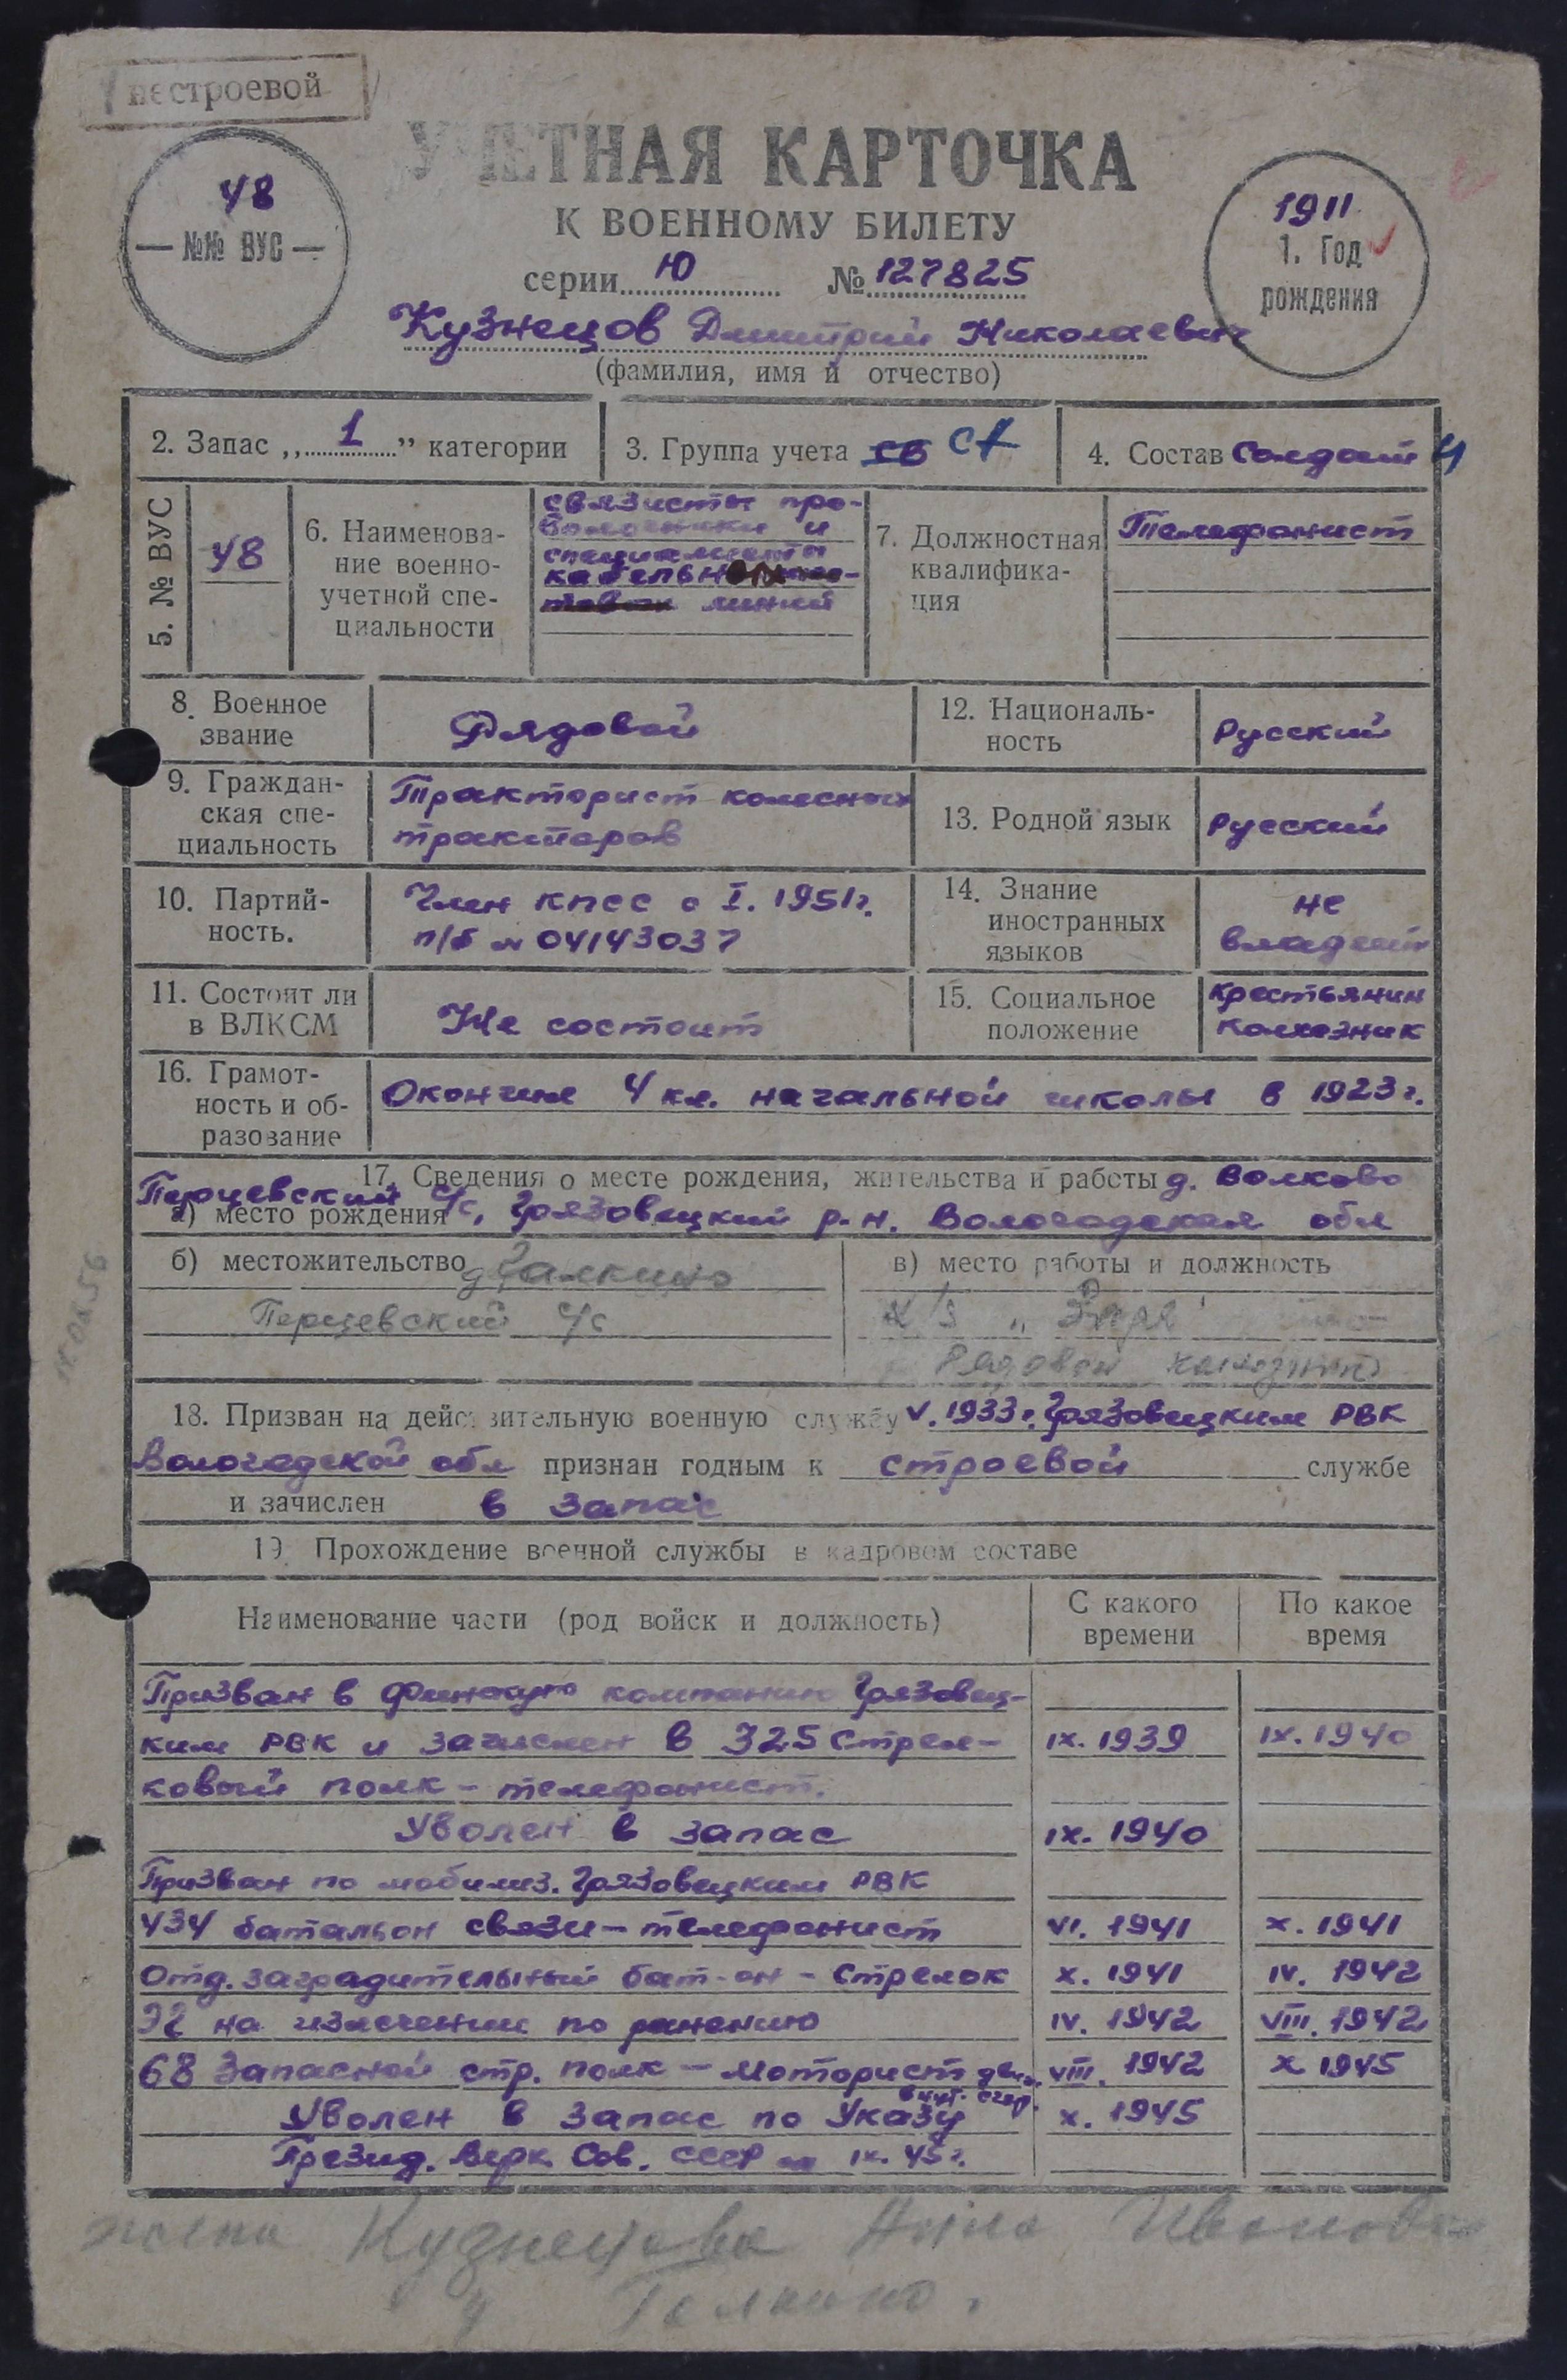 нестроевой
УЧЕТНАЯ КАРТОЧКА
К ВОЕННОМУ БИЛЕТУ
48
№№ ВУС
1911
1. Год
рождения
серии Ю № 127825
Кузнецов Дмитрий Николаевич
(фамилия, имя и отчество)
2. Запас „ 1 ” категории
3. Группа учета СВ СА
4. Состав Солдат
5. № ВУС
48
6. Наименова-
ние военно-
учетной спе-
циальности
связисты про-
волочники и
специалисты
кабельн
линий
7. Должностная
квалифика-
ция
Телефонист
8. Военное
звание
Рядовой
12. Националь-
ность
Русский
9. Граждан-
ская спе-
циальность
Тракторист колесных
тракторов
13. Родной язык
Русский
10. Партий-
ность.
Член КПСС с I. 1951г.
п/б № 04143037
14. Знание
иностранных
языков
не
владеет
11. Состоит ли
в ВЛКСМ
Не состоит
15. Социальное
положение
крестьянин
колхозник
16. Грамот-
ность и об-
разование
Окончил 4 кл. начальной школы в 1923 г.
17. Сведения о месте рождения, жительства и работы д. Волково
а) место рождения Перцевский с/с, Грязовецкий р-н. Вологодская обл
б) местожительство д Галкино
Перцевский с/с
в) место работы и должность
к/з „ Заря
Рядовой колхозник
18. Призван на действительную военную службу V. 1933 г. Грязовецким РВК
Вологодской обл признан годным к строевой службе
и зачислен в запас
19. Прохождение военной службы в кадровом составе
Наименование части (род войск и должность)
С какого
времени
По какое
время
Призван в финскую компанию Грязовец-
ким РВК и зачислен в 325 Стрел- IX. 1939 IX. 1940
ковый полк - телефонист.
Уволен в запас IX. 1940
Призван по мобилиз. Грязовецким РВК
434 батальон связи - телефонист VI. 1941 X. 1941
Отд. заградительный бат-он - Стрелок X. 1941 IV. 1942
ЭГ на излечении по ранению IV. 1942 VIII. 1942
68 Запасной стр. полк - Моторист двиг. VIII. 1942 X 1945
внут. сгор.
Уволен в запас по Указу X. 1945
Презид. Верх. Сов. СССР от IX. 45 г.
жена Кузнецова Анна Ивановна
д Галкино.